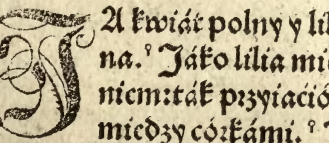 JA kwiát polny y lil
na. Jáko lilia mie
niem: ták przyiació
miedzy corkámi.